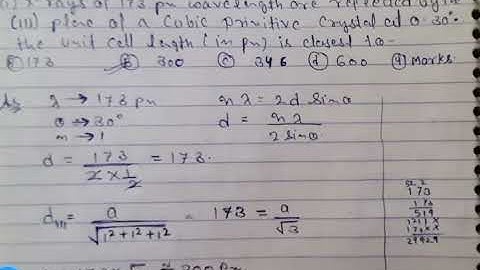 x rays of 173 pm wavelength are reflected by the
(111) plane of a Cubic primitive Crystal at θ 30°.
the unit cell length (in pm) is closest to -
ⓐ 173 ⓑ 300 ⓒ 346 ⓓ 600 (4) marks
λ → 173 pm nλ = 2d sinθ
θ → 30° d = nλ / 2 sinθ
n → 1
d = 173 / 2 × 1/2 = 173.
d₁₁₁ = a / √1²+1²+1² = 173 = a / √3
173
173
519
1211 x
173xx
29929